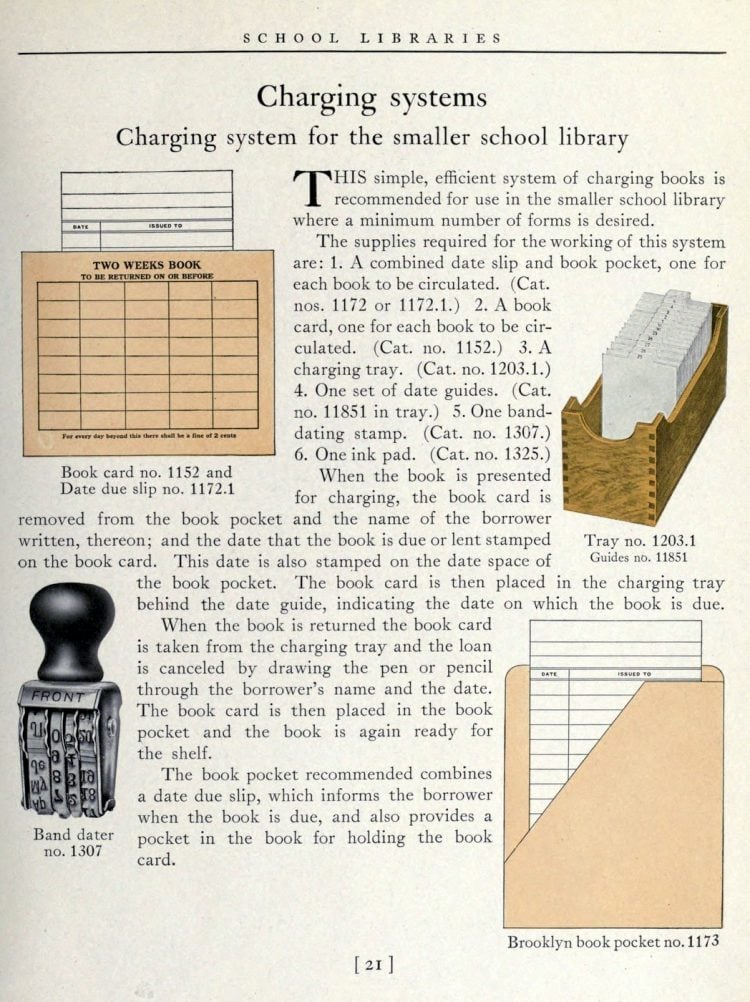 SCHOOL LIBRARIES
Charging systems
Charging system for the smaller school library
DATE ISSUED TO
TWO WEEKS BOOK
TO BE RETURNED ON OR BEFORE
For every day beyond this there shall be a fine of 2 cents
Book card no. 1152 and
Date due slip no. 1172.1
THIS simple, efficient system of charging books is
recommended for use in the smaller school library
where a minimum number of forms is desired.
The supplies required for the working of this system
are: 1. A combined date slip and book pocket, one for
each book to be circulated. (Cat.
nos. 1172 or 1172.1.) 2. A book
card, one for each book to be cir-
culated. (Cat. no. 1152.) 3. A
charging tray. (Cat. no. 1203.1.)
4. One set of date guides. (Cat.
no. 11851 in tray.) 5. One band-
dating stamp. (Cat. no. 1307.)
6. One ink pad. (Cat. no. 1325.)
When the book is presented
for charging, the book card is
removed from the book pocket and the name of the borrower
written, thereon; and the date that the book is due or lent stamped
on the book card. This date is also stamped on the date space of
the book pocket. The book card is then placed in the charging tray
behind the date guide, indicating the date on which the book is due.
Tray no. 1203.1
Guides no. 11851
When the book is returned the book card
is taken from the charging tray and the loan
is canceled by drawing the pen or pencil
through the borrower's name and the date.
The book card is then placed in the book
pocket and the book is again ready for
the shelf.
The book pocket recommended combines
a date due slip, which informs the borrower
when the book is due, and also provides a
pocket in the book for holding the book
card.
FRONT
Band dater
no. 1307
DATE ISSUED TO
Brooklyn book pocket no. 1173
[ 21 ]